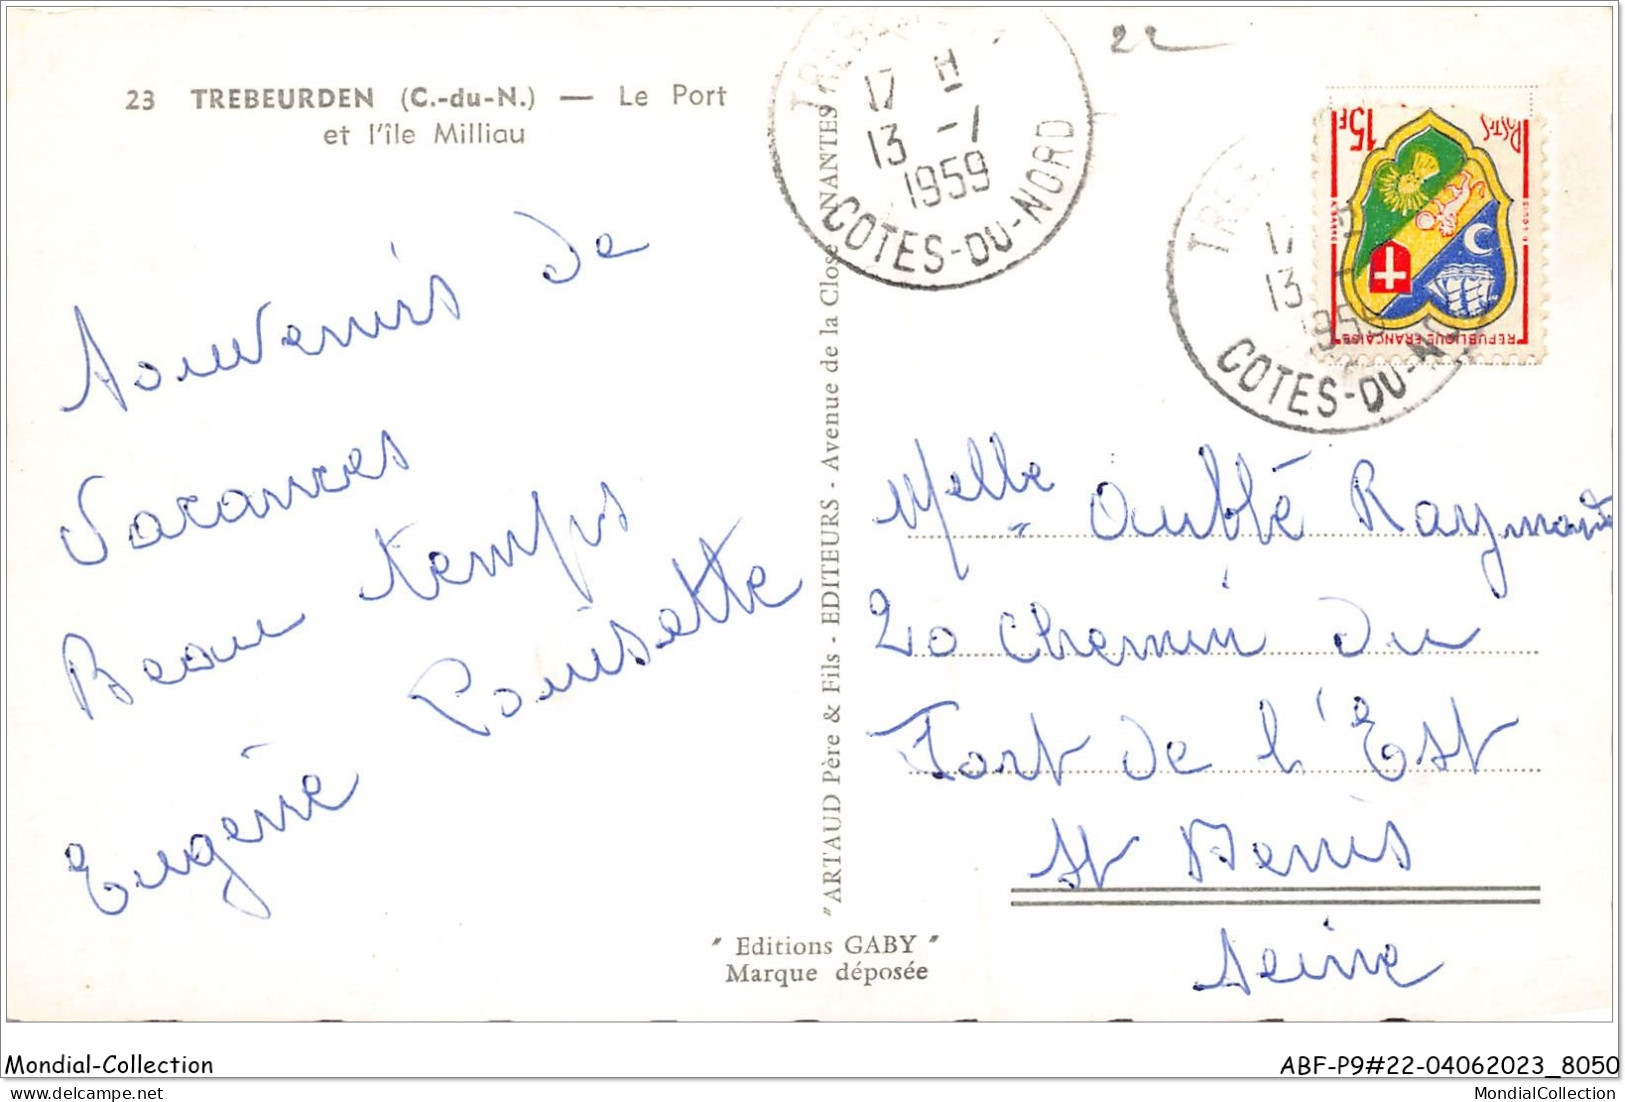 23 TREBEURDEN (C.-du-N.) — Le Port
et l'île Milliau
Souvenirs de
Vacances
Beau temps
Eugénie Louisette
"ARTAUD Père & Fils - EDITEURS - Avenue de la Close - NANTES
" Editions GABY "
Marque déposée
17 H
13 -1
1959
COTES-DU-NORD
22
POSTES
15F
ALSACE
REPUBLIQUE FRANÇAISE
13
1959
COTES-DU-NORD
Melle Oublé Raymonde
20 Chemin du
Fort de l'Est
St Denis
Seine
Mondial-Collection
ABF-P9#22-04062023_8050
MondialCollection